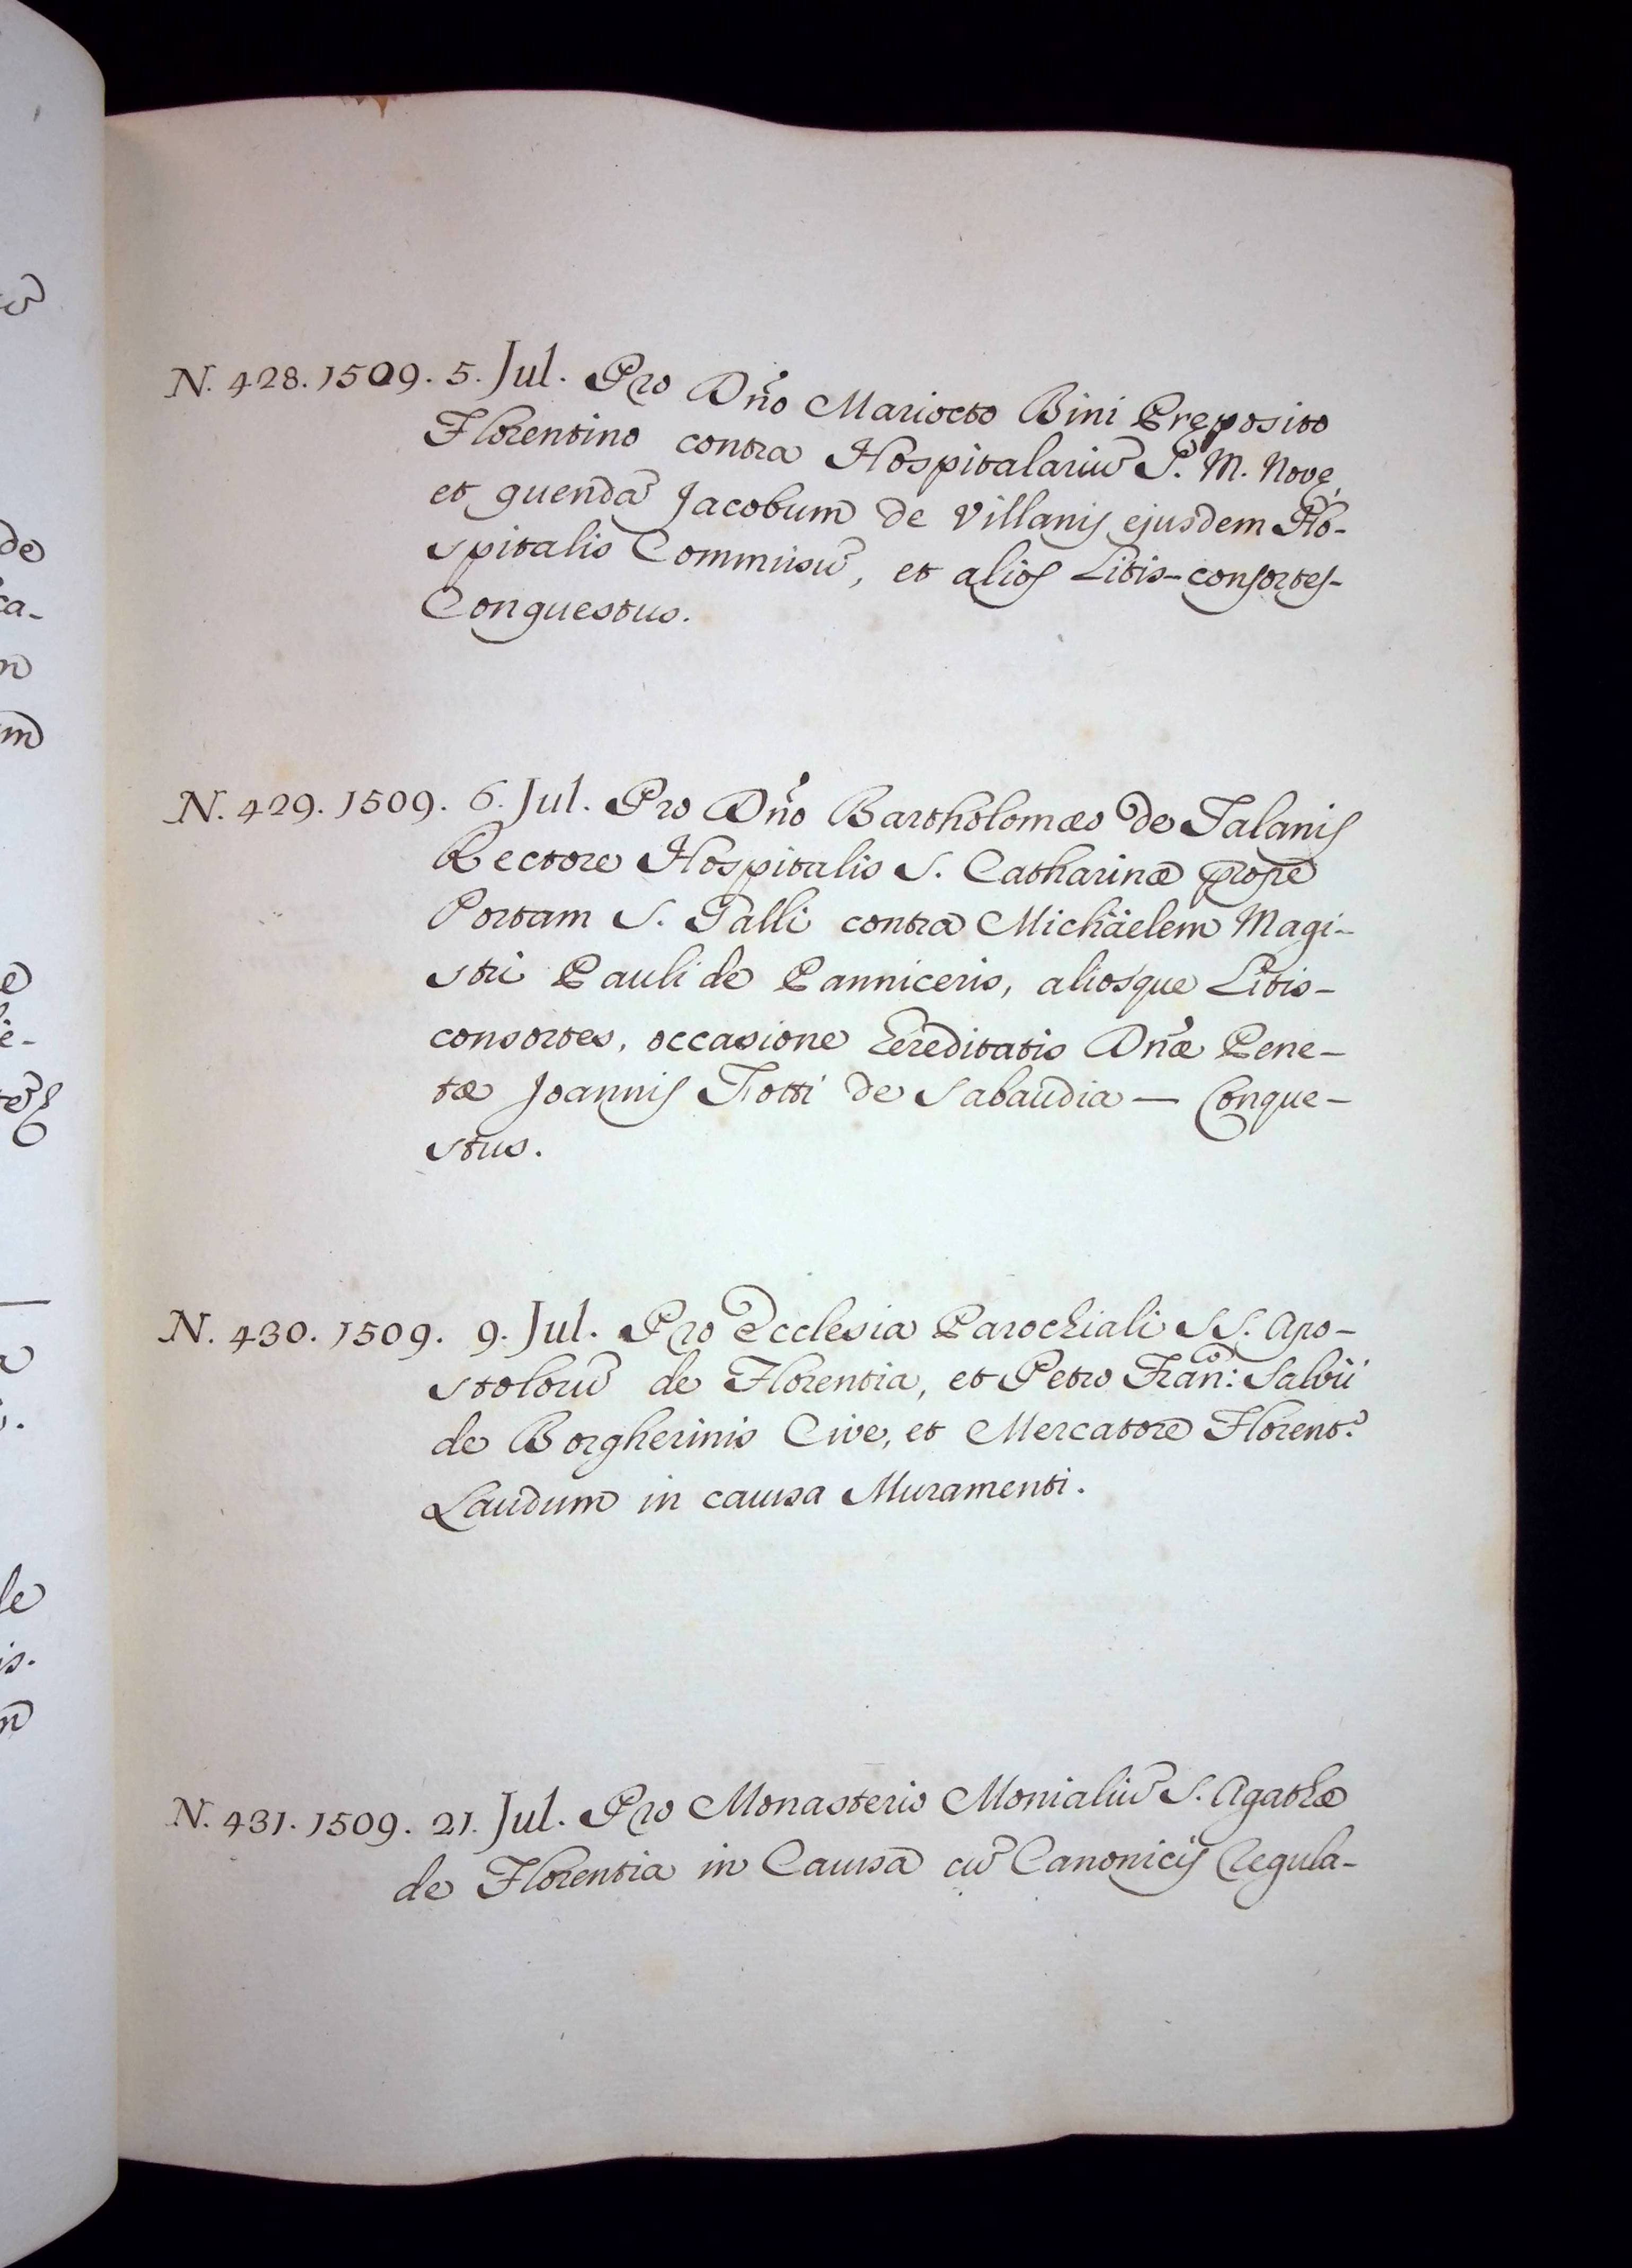 N. 428. 1509. 5. Jul. Pro Dño Mariocto Bini Pręposito
Florentino contra Hospitalariū S. M. Novę,
et quendā Jacobum de Villanis ejusdem Ho-
spitalis Commissū, et alios Litis-consortes-
Conquestus.
N. 429. 1509. 6. Jul. Pro Dño Bartholomæo de Talanis
Rectore Hospitalis S. Catharinæ prope
Portam S. Galli contra Michäelem Magi-
stri Pauli de Panniceris, aliosque Litis-
consortes, occasione Hereditatis Dñæ Bene-
tæ Joannis Totti de Sabaudia — Conque-
stus.
N. 430. 1509. 9. Jul. Pro Ecclesia Parochiali SS. Apo-
stolorū de Florentia, et Petro Fran:co Salvii
de Borgherinis Cive, et Mercatore Florent.o
Laudum in causa Muramenti.
N. 431. 1509. 21. Jul. Pro Monasterio Monialiū S. Agathæ
de Florentia in Causa cū Canonicis Regula-